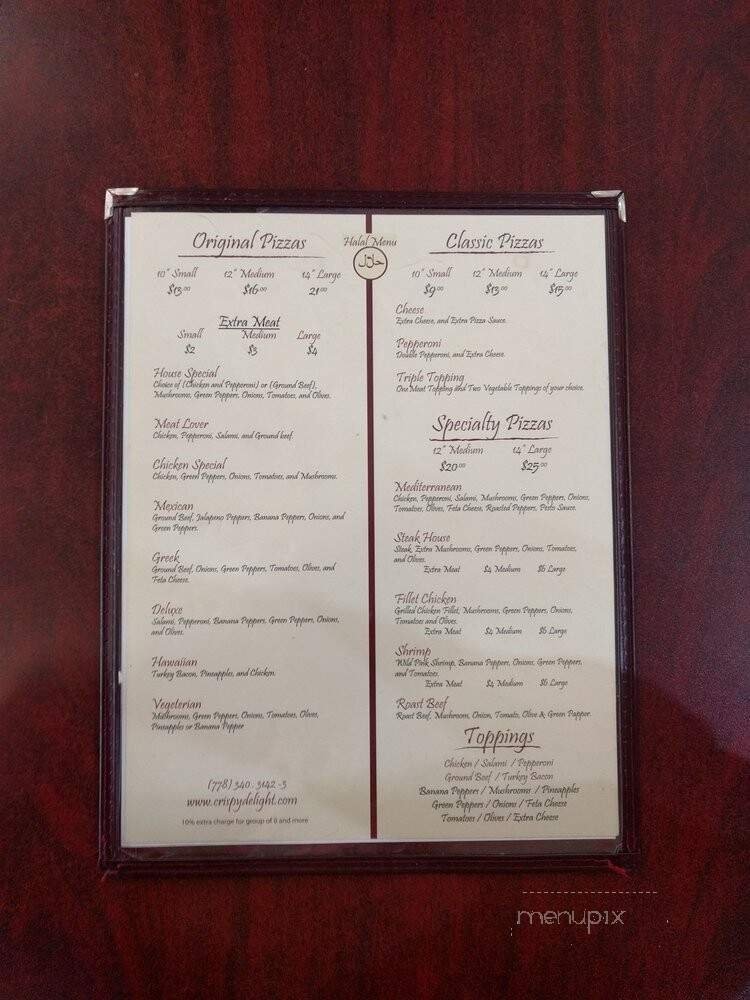 Original Pizzas
10" Small 12" Medium 14" Large
$13.00 $16.00 21.00
Extra Meat
Small Medium Large
$2 $3 $4
House Special
Choice of (Chicken and Pepperoni) or (Ground Beef),
Mushrooms, Green Peppers, Onions, Tomatoes, and Olives.
Meat Lover
Chicken, Pepperoni, Salami, and Ground beef.
Chicken Special
Chicken, Green Peppers, Onions, Tomatoes, and Mushrooms.
Mexican
Ground Beef, Jalapeno Peppers, Banana Peppers, Onions, and
Green Peppers.
Greek
Ground Beef, Onions, Green Peppers, Tomatoes, Olives, and
Feta Cheese.
Deluxe
Salami, Pepperoni, Banana Peppers, Green Peppers, Onions,
and Olives.
Hawaiian
Turkey Bacon, Pineapples, and Chicken.
Vegeterian
Mushrooms, Green Peppers, Onions, Tomatoes, Olives,
Pineapples or Banana Pepper
(778) 340 . 3142 -3
www.crispydelight.com
10% extra charge for group of 8 and more
Halal Menu
حلال
Classic Pizzas
10" Small 12" Medium 14" Large
$9.00 $13.00 $15.00
Cheese
Extra Cheese, and Extra Pizza Sauce.
Pepperoni
Double Pepperoni, and Extra Cheese.
Triple Topping
One Meat Topping and Two Vegetable Toppings of your choice.
Specialty Pizzas
12" Medium 14" Large
$20.00 $25.00
Mediterranean
Chicken, Pepperoni, Salami, Mushrooms, Green Peppers, Onions,
Tomatoes, Olives, Feta Cheese, Roasted Peppers, Pesto Sauce.
Steak House
Steak, Extra Mushrooms, Green Peppers, Onions, Tomatoes,
and Olives.
Extra Meat $4 Medium $6 Large
Fillet Chicken
Grilled Chicken Fillet, Mushrooms, Green Peppers, Onions,
Tomatoes and Olives.
Extra Meat $4 Medium $6 Large
Shrimp
Wild Pink Shrimp, Banana Peppers, Onions, Green Peppers,
and Tomatoes.
Extra Meat $4 Medium $6 Large
Roast Beef
Roast Beef, Mushroom, Onion, Tomato, Olive & Green Papper.
Toppings
Chicken / Salami / Pepperoni
Ground Beef / Turkey Bacon
Banana Peppers / Mushrooms / Pineapples
Green Peppers / Onions / Feta Cheese
Tomatoes / Olives / Extra Cheese
menupix